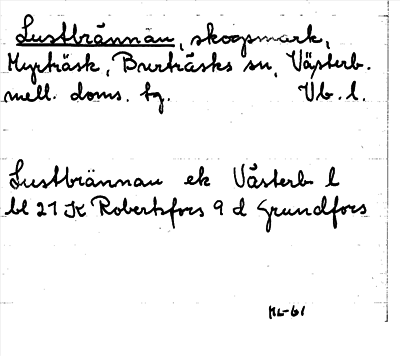 Lustbrännan, skogsmark,
Myrträsk, Burträsks sn, Västerb.
mell. doms. bg. Vb. l.
Lustbrännan ek Västerb l
bl 21 K Robertsfors 9 d Grundfors
ML-61